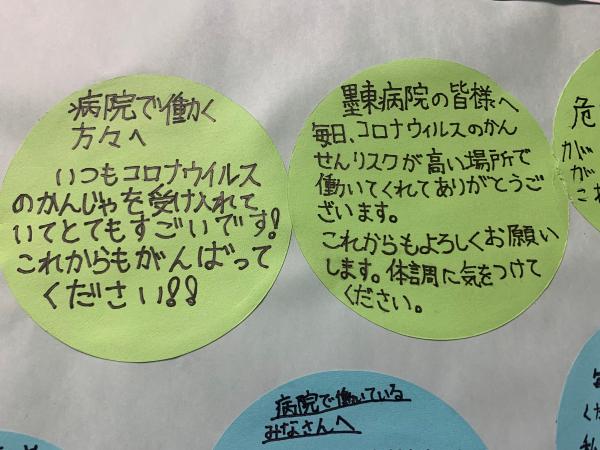 病院で働く
方々へ
いつもコロナウイルス
のかんじゃを受け入れて
いてとてもすごいです!
これからもがんばって
ください!!
墨東病院の皆様へ
毎日、コロナウィルスのかん
せんリスクが高い場所で
働いてくれてありがとうご
ざいます。
これからもよろしくお願い
します。体調に気をつけて
ください。
危
がが
これ
病院で働いている
みなさんへ